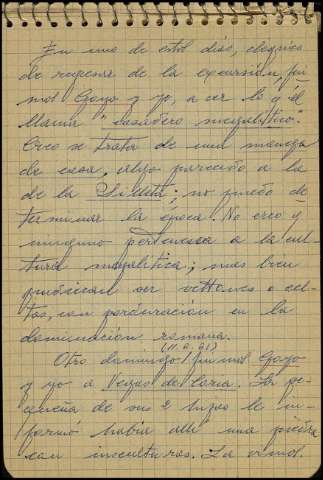 En uno de estos días, después
de regresar de la excursión, fui
mos Goyo y yo, a ver lo q. él
llama "casadero megalítico".
Creo se trata de una manera
de casa, algo parecido a la
de la Silleta; no puedo de
terminar la época. No creo q.
ninguno pertenezca a la cul
tura megalítica; mas bien
pudieran ser vettones o cel
tas, con perduración en la
dominación romana.
(11.2.91)
Otro domingo fuimos Goyo
y yo a Vegas de Coria. La pe
queña de sus 2 hijas le in
formó había allí una piedra
con insculturas. La vimos.